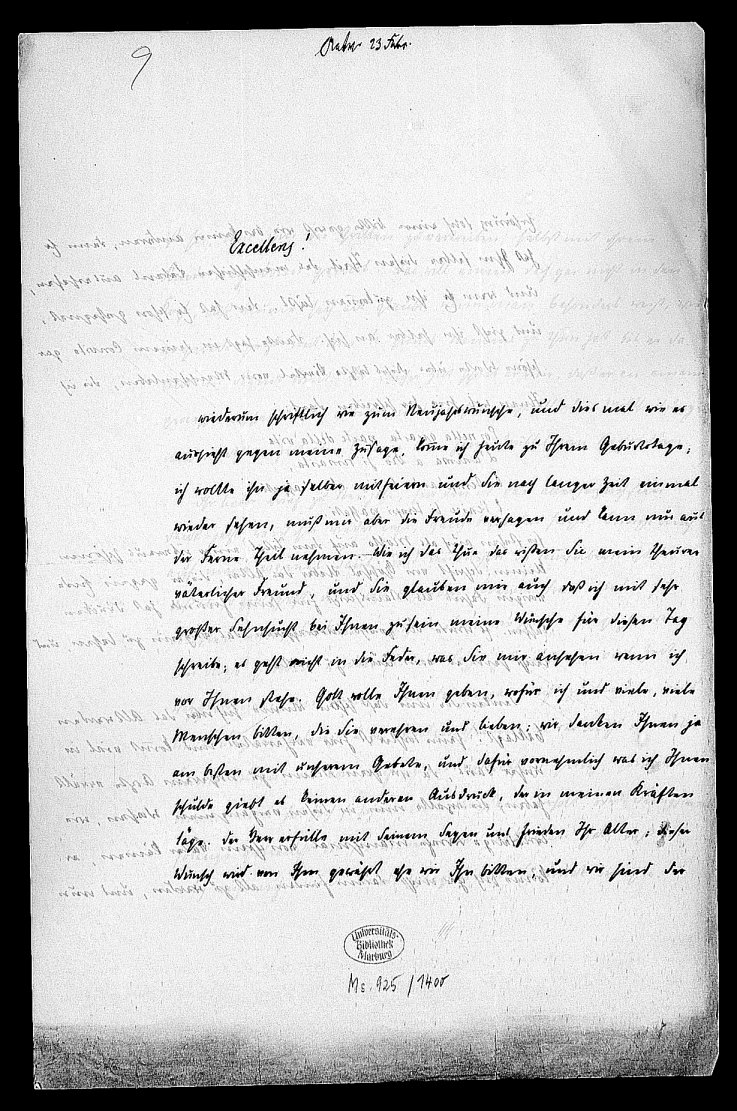 9
23 Febr.
Excellenz!
wiederum schriftlich wie zum Neujahrswunsche, und dies mal wie es
aussieht gegen meine Zusage, komme ich heute zu Ihrem Geburtstage;
ich wollte ihn ja selber mitfeiern und Sie nach langer Zeit einmal
wieder sehen, muß nun aber die Freude versagen und kann nur aus
der Ferne Theil nehmen. Wie ich das thue das wissen Sie mein theurer
väterlicher Freund, und Sie glauben mir auch daß ich mit sehr
großer Sehnsucht bei Ihnen zu sein meine Wünsche für diesen Tag
schreibe; es geht nicht in die Feder, was Sie mir ansehen wenn ich
vor Ihnen stehe. Gott wolle Ihnen geben, wofür ich und viele, viele
Menschen bitten, die Sie verehren und lieben: wir danken Ihnen ja
am besten mit unserem Gebete, und dafür vornehmlich was ich Ihnen
schulde giebt es keinen anderen Ausdruck, der in meinen Kräften
läge. Der Herr erfülle mit Seinem Segen und Frieden Ihr Alter; dieser
Wunsch wird von Ihm gewährt ehe wir Ihn bitten, und wir sind der
Universitäts-
Bibliothek
Marburg
Ms. 925 / 1400